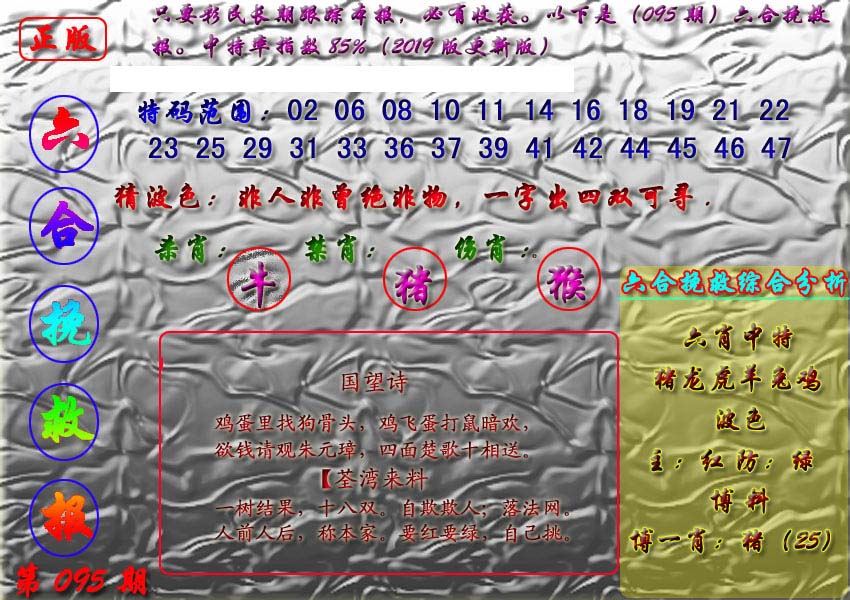 正版
只要彩民长期跟踪本报，必有收获。以下是（095期）六合挽救
报。中特率指数85%（2019版更新版）
六合挽救报
第095期
特码范围：02 06 08 10 11 14 16 18 19 21 22
23 25 29 31 33 36 37 39 41 42 44 45 46 47
猜波色：非人非曾绝非物，一字出四双可寻．
杀肖：牛 禁肖：猪 伤肖：。猴
国望诗
鸡蛋里找狗骨头，鸡飞蛋打鼠暗欢，
欲钱请观朱元璋，四面楚歌十相送。
【荃湾来料
一树结果，十八双。自欺欺人；落法网。
人前人后，称本家。要红要绿，自己挑。
六合挽救综合分析
六肖中特
猪龙虎羊兔鸡
波色
主：红防：绿
博料
博一肖：猪（25）